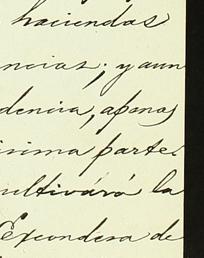 haciendas
ncias; y aun
dencia, apenas
isima parte.
cultivará la
de